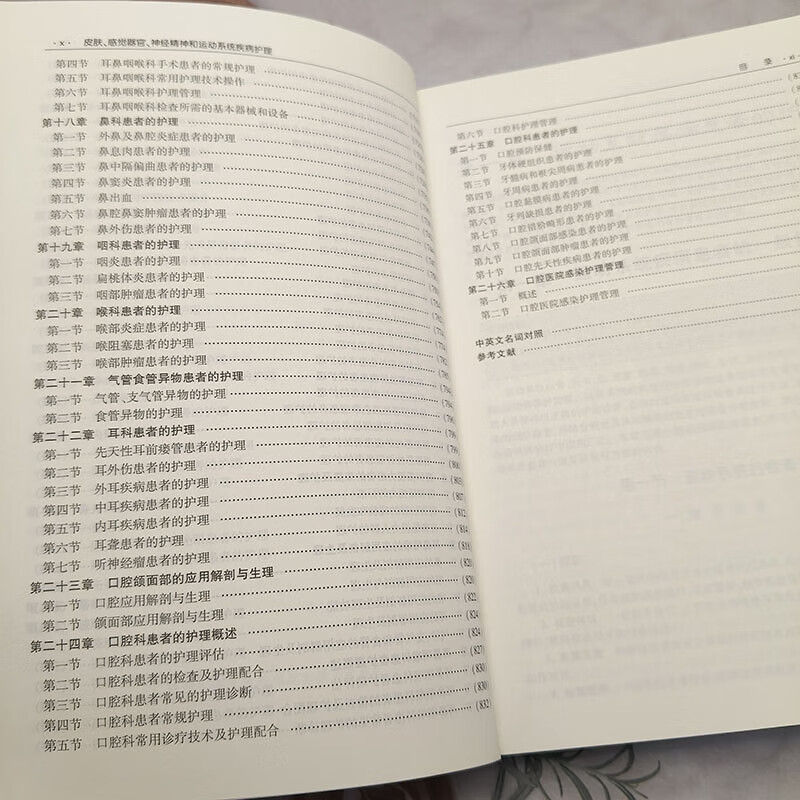 · x · 皮肤、感觉器官、神经精神和运动系统疾病护理
第四节 耳鼻咽喉科手术患者的常规护理
第五节 耳鼻咽喉科常用护理技术操作
第六节 耳鼻咽喉科护理管理
第七节 耳鼻咽喉科检查所需的基本器械和设备
第十八章 鼻科患者的护理
第一节 外鼻及鼻腔炎症患者的护理
第二节 鼻息肉患者的护理
第三节 鼻中隔偏曲患者的护理
第四节 鼻窦炎患者的护理
第五节 鼻出血
第六节 鼻腔鼻窦肿瘤患者的护理
第七节 鼻外伤患者的护理
第十九章 咽科患者的护理
第一节 咽炎患者的护理
第二节 扁桃体炎患者的护理
第三节 咽部肿瘤患者的护理
第二十章 喉科患者的护理
第一节 喉部炎症患者的护理
第二节 喉阻塞患者的护理
第三节 喉部肿瘤患者的护理
第二十一章 气管食管异物患者的护理
第一节 气管、支气管异物的护理
第二节 食管异物的护理
第二十二章 耳科患者的护理 (799)
第一节 先天性耳前瘘管患者的护理 (799)
第二节 耳外伤患者的护理 (800)
第三节 外耳疾病患者的护理 (803)
第四节 中耳疾病患者的护理 (807)
第五节 内耳疾病患者的护理 (812)
第六节 耳聋患者的护理 (814)
第七节 听神经瘤患者的护理 (818)
第二十三章 口腔颌面部的应用解剖与生理 (820)
第一节 口腔应用解剖与生理 (820)
第二节 颌面部应用解剖与生理 (822)
第二十四章 口腔科患者的护理概述 (824)
第一节 口腔科患者的护理评估 (824
第二节 口腔科患者的检查及护理配合 (827)
第三节 口腔科患者常见的护理诊断 (830)
第四节 口腔科患者常规护理 (830)
第五节 口腔科常用诊疗技术及护理配合 (832)
目 录 · xi
第六节 口腔科护理管理
第二十五章 口腔科患者的护理
第一节 口腔预防保健
第二节 牙体硬组织患者的护理
第三节 牙髓病和根尖周病患者的护理
第四节 牙周病患者的护理
第五节 口腔黏膜病患者的护理
第六节 牙列缺损患者的护理
第七节 口腔错𬌗畸形患者的护理
第八节 口腔颌面部感染患者的护理
第九节 口腔颌面部肿瘤患者的护理
第十节 口腔先天性疾病患者的护理
第二十六章 口腔医院感染护理管理
第一节 概述
第二节 口腔医院感染护理管理
中英文名词对照
参考文献